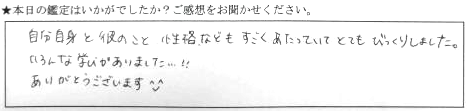 ★本日の鑑定はいかがでしたか？ご感想をお聞かせください。
自分自身と彼のこと 性格なども すごくあたっていて とても びっくりしました。
いろんな学びがありました…!!
ありがとうございます^^